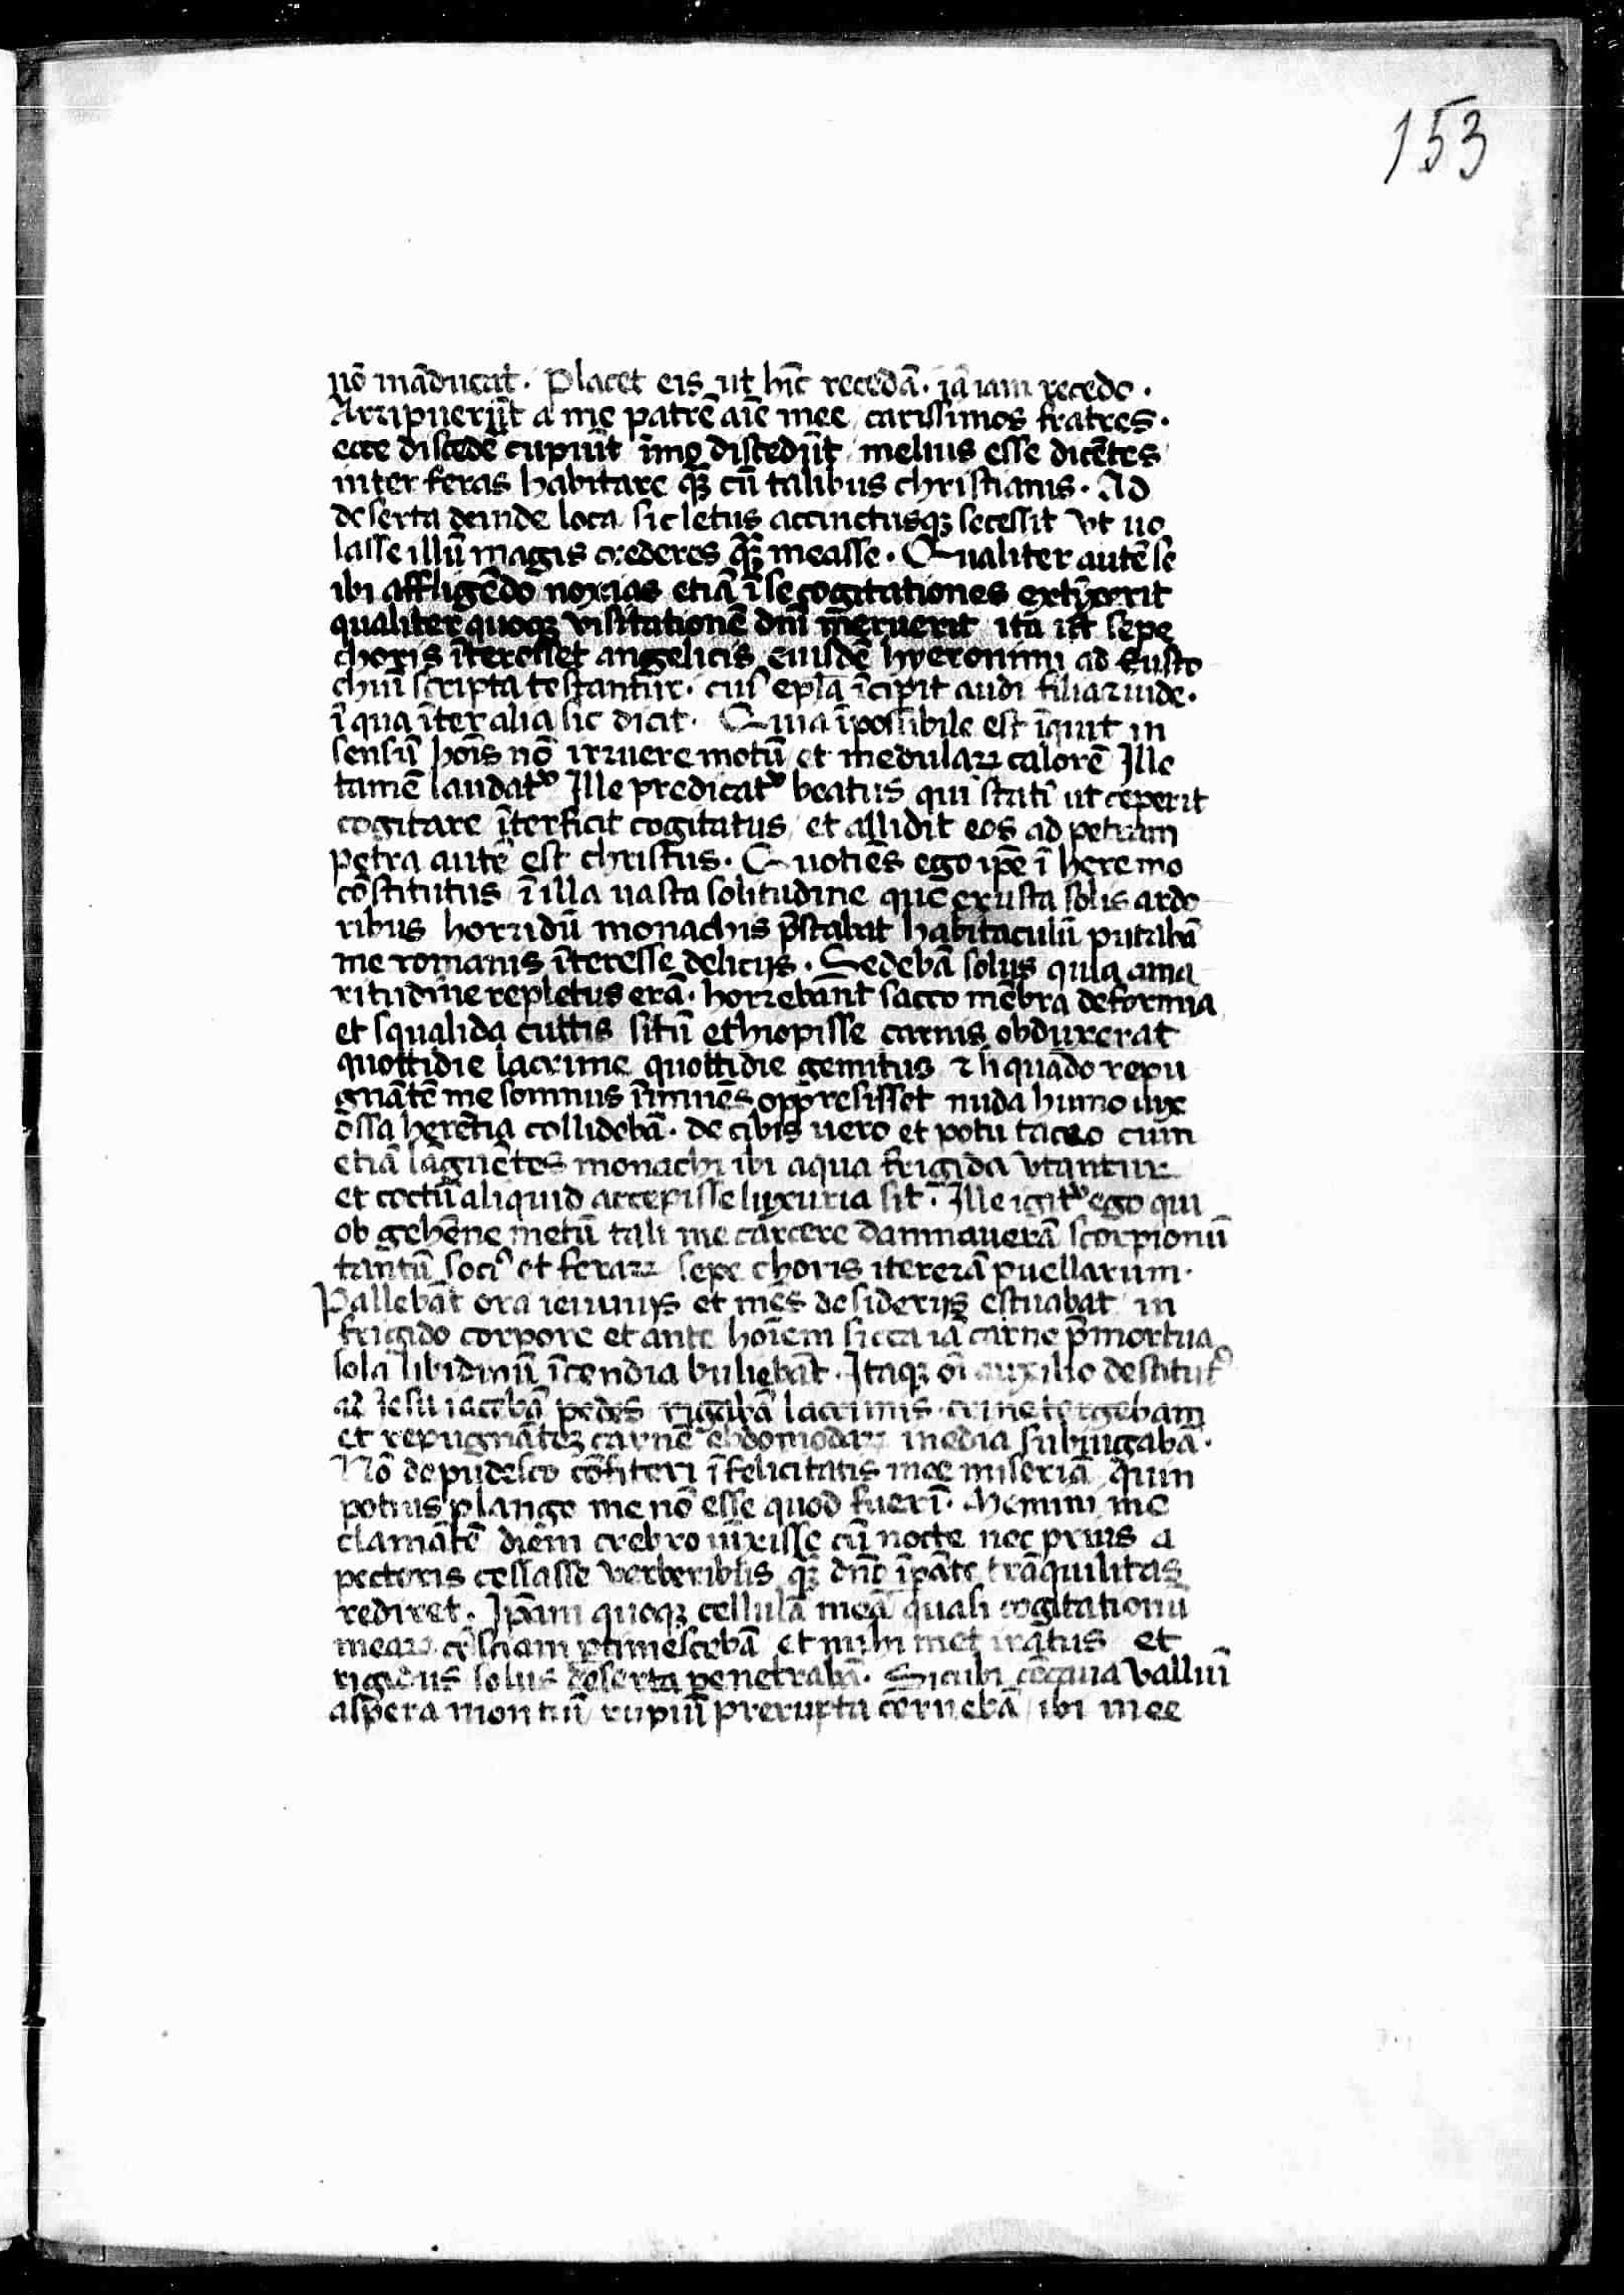 153
nō māducāt. Placet eis ut hīc recedā. iā iam recedo.
Arripuerūt a me patrē aīe mee carissimos fratres.
ecce discedē cupiūt īmo discedūt melius esse dicētes
inter feras habitare q̄ȝ cū talibus christianis. Ad
deserta deinde loca sic letus accinctusqȝ secessit vt uo
lasse illū magis crederes q̄ȝ measse. Qualiter autē se
ibi affligēdo noxias etiā ī se cogitationes extīxerit
qualiter quoqȝ visitationē dn̄i meruerit ita ut sepe
choris īteresset angelicis eiusdē hyeronimi ad Eusto
chiū scripta testantur. cuiꝰ epl̄a īcipit audi filia ⁊ uide.
ī qua īter alia sic dicit. Quia īpossibile est īquit in
sensū hoīs nō irruere motū et medulaꝝ calorē Ille
tamē laudatᷣ Ille predicatᷣ beatus qui statī ut ceperit
cogitare īterficit cogitatus et allidit eos ad petram
petra autē est christus. Quotiēs ego ip̄e ī heremo
cōstitutus ī illa uasta solitudine que exusta solis ardo
ribus horridū monachis p̄stabat habitaculū putabā
me romanis īteresse delicijs. Sedebā solus quia ama
ritudine repletus erā. horrebant sacco mēbra deformia
et squalida cuttis sitū ethiopisse carnis obduxerat
quottidie lacrime quottidie gemitus ⁊ si quādo repu
gnātē me somnus īminēs oppresisset nuda humo uix
ossa herētia collidebā. de cibis uero et potu taceo cum
etiā lāguētes monachi ibi aqua frigida vtantur
et coctū aliquid accepisse luxuria sit. Ille igitᷣ ego qui
ob gehēne metū tali me carcere damnauerā scorpionū
tantū sociꝰ et feraꝝ sepe choris itererā puellarum.
Pallebāt ora ieiunijs et mēs desiderijs estuabat in
frigido corpore et ante hoīem sicca iā carne p̄mortua
sola libidinū īcendia buliebāt. Itaqȝ oī auxilio destitutꝰ
ad Iesu iacebā pedes rigabā lacrimis. crine tergebam
et repugnātē carnē ebdomodaꝝ inedia subiugabā.
Nō depudesco cōfiteri īfelicitatis mee miseriā quin
potius plango me nō esse quod fuerī. Memini me
clamātē diem crebro iūxisse cū nocte nec prius a
pectoris cessasse verberibus q̄ȝ dn̄o īpāte trāquilitas
rediret. Ip̄am quoqȝ cellulā meā quasi cogitationū
meaꝝ cōsciam ꝑtimescebā et mihi met iratus et
rigidus solus deserta penetrabā. Sicubi cōcaua valliū
aspera montiū rupiū prerupta cernebā ibi mee